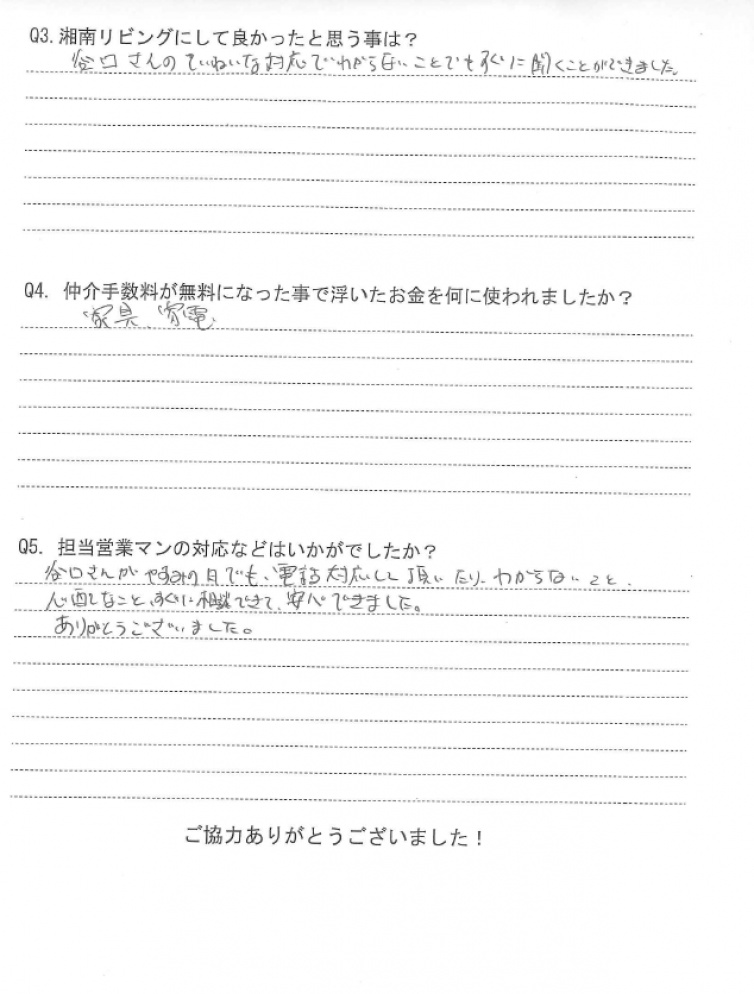 Q3.湘南リビングにして良かったと思う事は？
谷口さんのていねいな対応でわからないことでもすぐに聞くことができました。
Q4. 仲介手数料が無料になった事で浮いたお金を何に使われましたか？
家具、家電
Q5. 担当営業マンの対応などはいかがでしたか？
谷口さんがやすみの日でも、電話対応して頂いたり、わからないこと、
心配なこと、すぐに相談できて、安心できました。
ありがとうございました。
ご協力ありがとうございました！